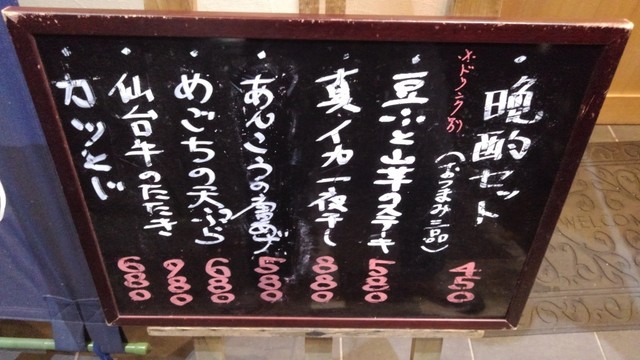 ・晩酌セット
(おつまみ三品)
450
※ドリンク別
・豆ふと山芋のステーキ
580
・真イカ一夜干し
880
・あんこうの唐あげ
580
・めごちの天ぷら
680
・仙台牛のたたき
980
・カツとじ
680